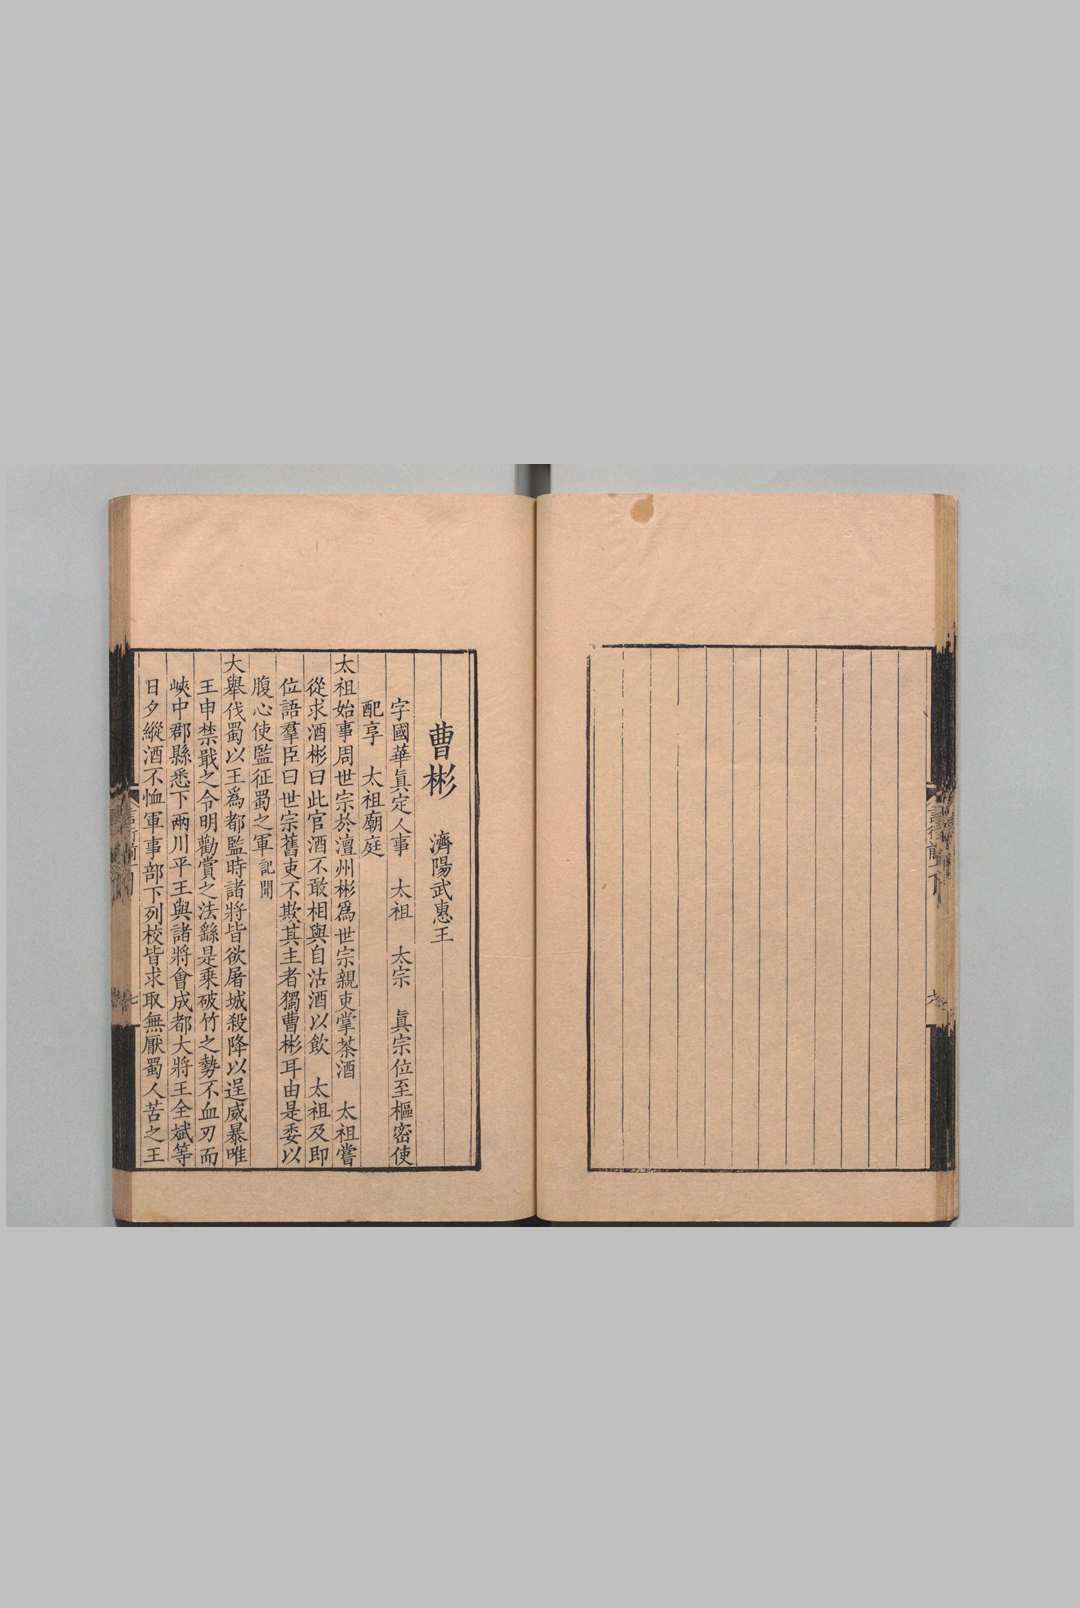 曹彬　濟陽武惠王
字國華眞定人事　太祖　太宗　眞宗位至樞密使
配享　太祖廟庭
太祖始事周世宗於澶州彬爲世宗親吏掌茶酒　太祖嘗
從求酒彬曰此官酒不敢相與自沽酒以飲　太祖及即
位語羣臣曰世宗舊吏不欺其主者獨曹彬耳由是委以
腹心使監征蜀之軍記聞
大舉伐蜀以王爲都監時諸將皆欲屠城殺降以逞威暴唯
王申禁戢之令明勸賞之法繇是乘破竹之勢不血刃而
峽中郡縣悉下兩川平王與諸將會成都大將王全斌等
日夕縱酒不恤軍事部下列校皆求取無厭蜀人苦之王